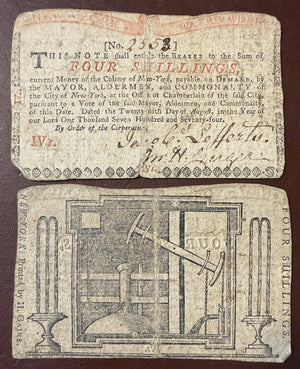 NEW-YORK WATER WORKS
[No. 2553]
THIS NOTE shall entitle the BEARER to the Sum of
FOUR SHILLINGS,
current Money of the Colony of New-York, payable on DEMAND, by
the MAYOR, ALDERMEN, and COMMONALTY of
the City of New-York, at the Office of Chamberlain of the said City,
pursuant to a Vote of the said Mayor, Aldermen, and Commonalty,
of this Date. Dated the Twenty-fifth Day of August, in the Year of
our Lord One Thousand Seven Hundred and Seventy-four.
By Order of the Corporation,
IVs.
NEW-YORK: Printed by H. GAINE.
FOUR SHILLINGS.